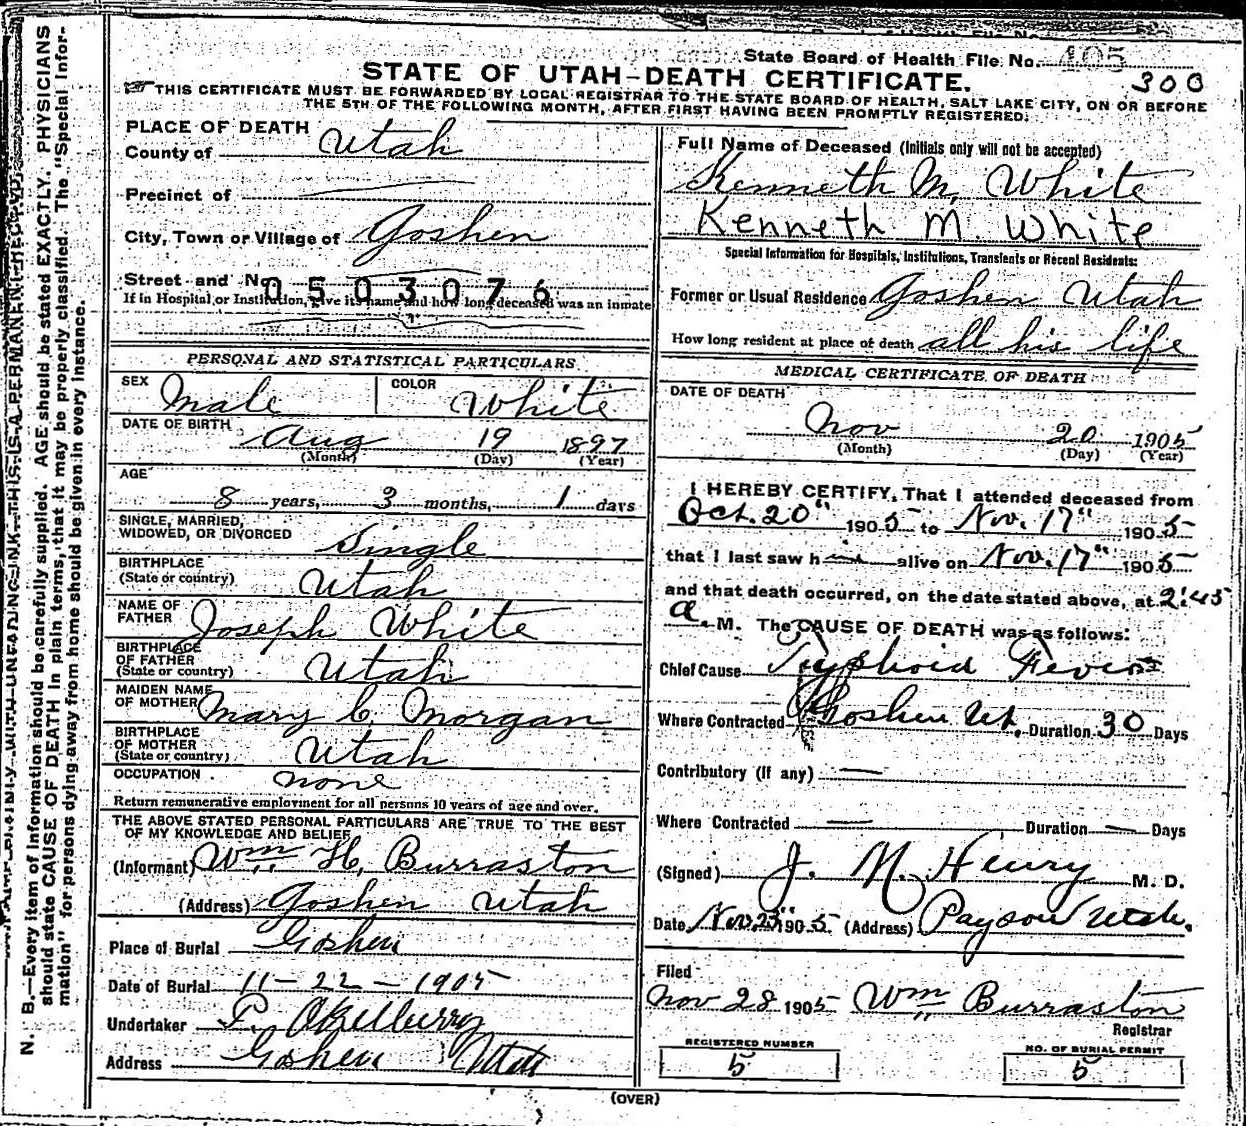 State Board of Health File No. 405
300
STATE OF UTAH-DEATH CERTIFICATE.
THIS CERTIFICATE MUST BE FORWARDED BY LOCAL REGISTRAR TO THE STATE BOARD OF HEALTH, SALT LAKE CITY, ON OR BEFORE
THE 5TH OF THE FOLLOWING MONTH, AFTER FIRST HAVING BEEN PROMPTLY REGISTERED.
PLACE OF DEATH
County of Utah
Precinct of
City, Town or Village of Goshen
Street and No.
0503076
If in Hospital or Institution, give its name and how long deceased was an inmate
PERSONAL AND STATISTICAL PARTICULARS
SEX Male COLOR White
DATE OF BIRTH Aug 19 1897
(Month) (Day) (Year)
AGE
8 years, 3 months, 1 days
SINGLE, MARRIED,
WIDOWED, OR DIVORCED Single
BIRTHPLACE
(State or country) Utah
NAME OF
FATHER Joseph White
BIRTHPLACE
OF FATHER
(State or country) Utah
MAIDEN NAME
OF MOTHER Mary C. Morgan
BIRTHPLACE
OF MOTHER
(State or country) Utah
OCCUPATION none
Return remunerative employment for all persons 10 years of age and over.
THE ABOVE STATED PERSONAL PARTICULARS ARE TRUE TO THE BEST
OF MY KNOWLEDGE AND BELIEF
(Informant) Wm. H. Burraston
(Address) Goshen Utah
Place of Burial Goshen
Date of Burial 11-22-1905
Undertaker P. Okelberry
Address Goshen Utah
Full Name of Deceased (Initials only will not be accepted)
Kenneth M. White
Kenneth M. White
Special Information for Hospitals, Institutions, Transients or Recent Residents:
Former or Usual Residence Goshen Utah
How long resident at place of death all his life
MEDICAL CERTIFICATE OF DEATH
DATE OF DEATH
Nov 20 1905
(Month) (Day) (Year)
I HEREBY CERTIFY, That I attended deceased from
Oct. 20" 1905 to Nov. 17" 1905
that I last saw him alive on Nov. 17" 1905
and that death occurred, on the date stated above, at 2:45
a. M. The CAUSE OF DEATH was as follows:
Chief Cause Typhoid Fever
Where Contracted Goshen Ut. Duration 30 Days
Contributory (If any) —
Where Contracted — Duration — Days
(Signed) J. M. Henry M. D.
Date Nov. 23" 1905 (Address) Payson Utah.
Filed
Nov 28 1905 Wm. Burraston
Registrar
REGISTERED NUMBER
5
NO. OF BURIAL PERMIT
5
(OVER)
N. B.—Every item of information should be carefully supplied. AGE should be stated EXACTLY. PHYSICIANS
should state CAUSE OF DEATH in plain terms, that it may be properly classified. The "Special Infor-
mation" for persons dying away from home should be given in every instance.
WITH UNFADING INK—THIS IS A PERMANENT RECORD.